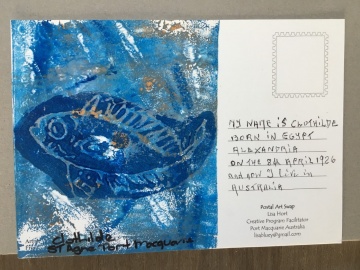 MY NAME IS CLOTHILDE
BORN IN EGYPT
ALEXANDRIA
ON THE 8th APRIL 1926
AND NOW I LIVE IN
AUSTRALIA
Postal Art Swap
Lisa Hort
Creative Program Facilitator
Port Macquarie Australia
Clothilde
St Agnes Port Macquarie